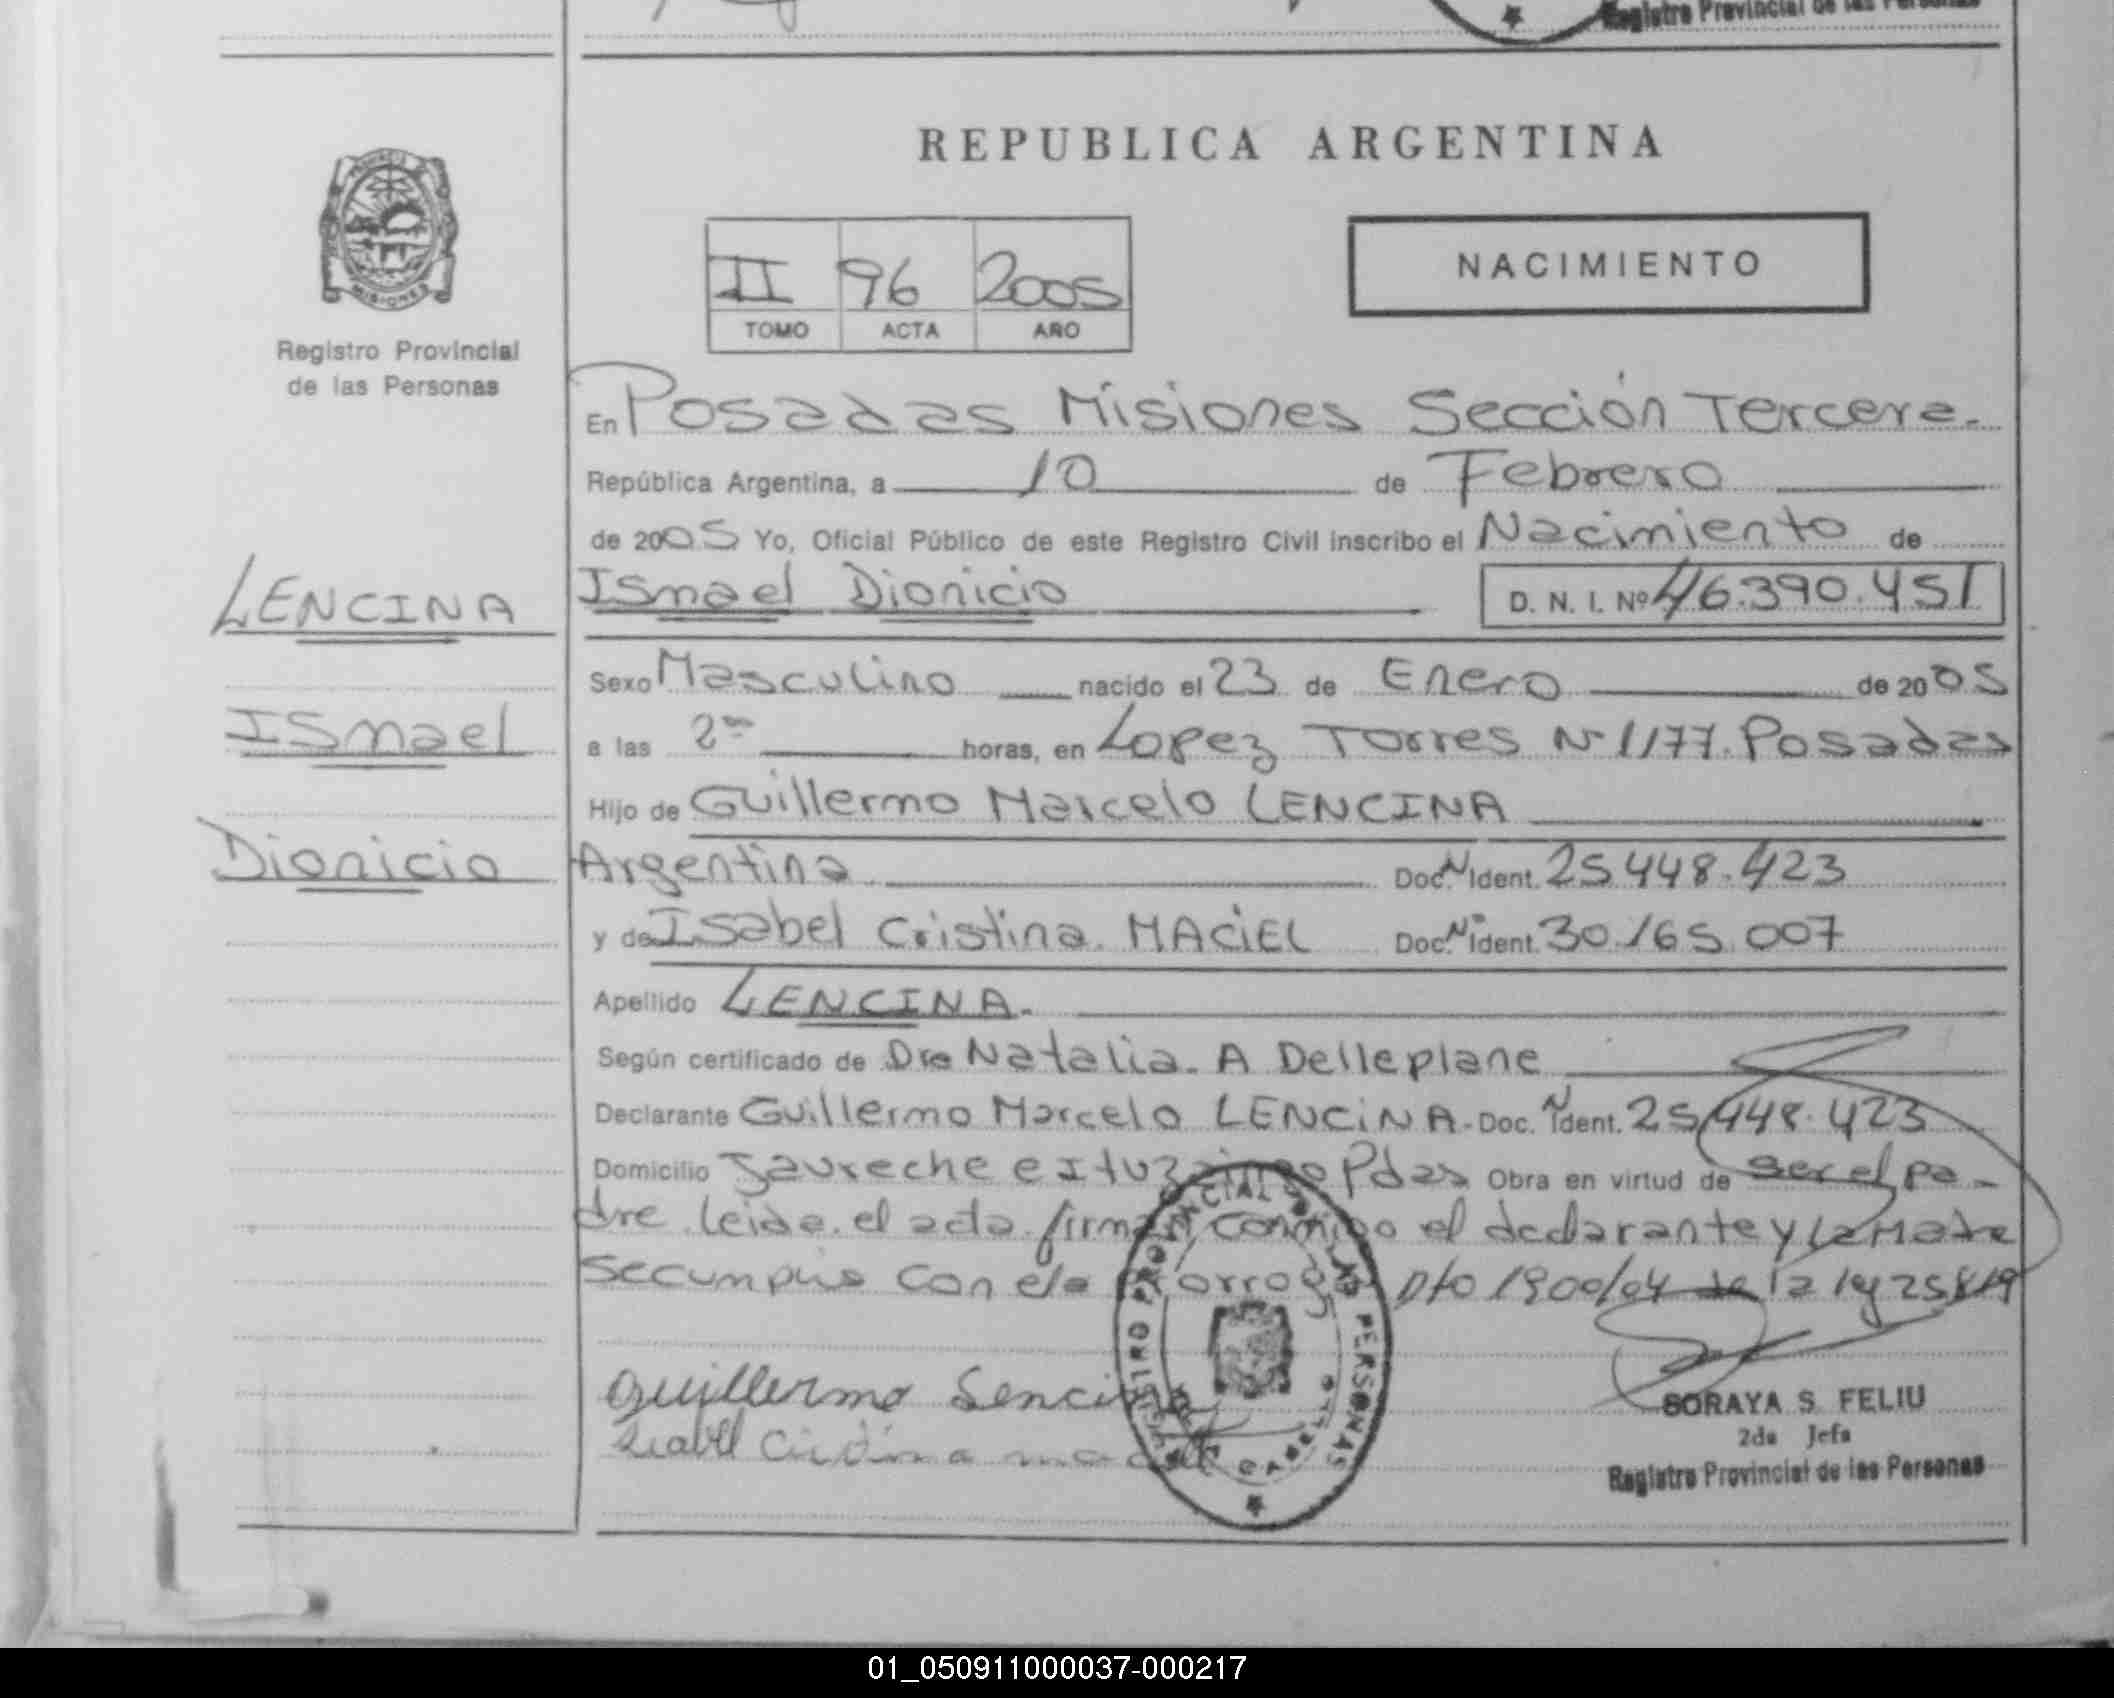 Registro Provincial de las Personas
REPUBLICA ARGENTINA
MISIONES
Registro Provincial
de las Personas
II 96 2005
TOMO ACTA AÑO
NACIMIENTO
En Posadas Misiones Sección Tercera.
República Argentina, a 10 de Febrero
de 2005 Yo, Oficial Público de este Registro Civil inscribo el Nacimiento de
LENCINA
Ismael Dionicio D. N. I. Nº 46.390.451
Sexo Masculino nacido el 23 de Enero de 2005
Ismael
a las 2 horas, en Lopez Torres Nº 1177. Posadas
Hijo de Guillermo Marcelo LENCINA
Dionicio
Argentina Doc. Nº Ident. 25.448.423
y de Isabel Cristina MACIEL Doc. Nº Ident. 30.165.007
Apellido LENCINA.
Según certificado de Dra Natalia. A Delleplane
Declarante Guillermo Marcelo LENCINA. Doc. Nº Ident. 25.448.423
Domicilio Jaureche e Ituzaingo Pdas Obra en virtud de ser el pa-
dre leida el acta firman conmigo el declarante y la Madre
Se cumpus con ela Prorroga Dto 1900/04 de la ley 25819
Guillermo Lencina
Isabel Cristina maciel
REGISTRO PROVINCIAL DE LAS PERSONAS
SORAYA S. FELIU
2da Jefa
Registro Provincial de las Personas
01_050911000037-000217